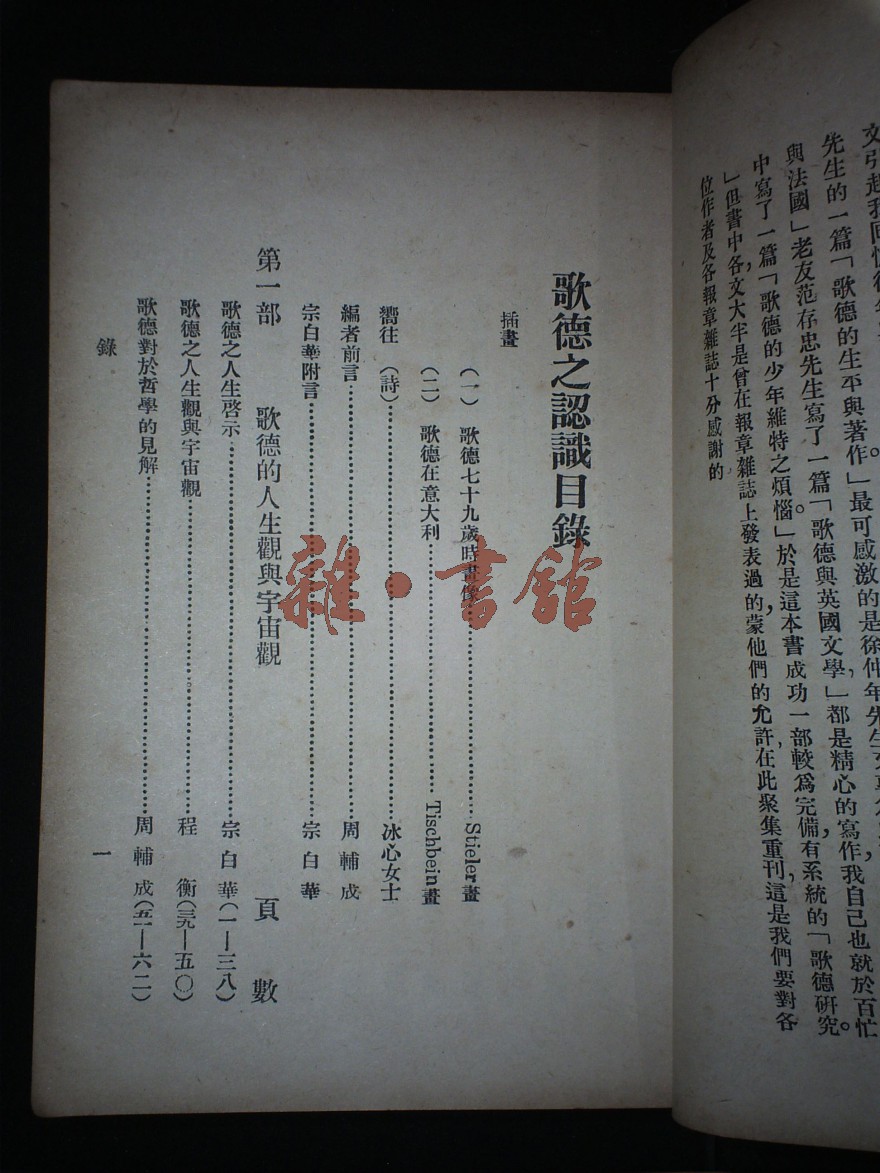 先生的一篇「歌德的生平與著作」最可感激的是徐仲年先生
與法國」老友范存忠先生寫了一篇「歌德與英國文學，」都是精心的寫作我自己也就於百忙
中寫了一篇「歌德的少年維特之煩惱。」於是這本書成功一部較爲完備，有系統的「歌德研究。
」但書中各文大半是曾在報章雜誌上發表過的，蒙他們的允許，在此聚集重刊，這是我們要對各
位作者及各報章雜誌十分感謝的
歌德之認識目錄
插畫
（一） 歌德七十九歲時畫像 Stieler畫
（二） 歌德在意大利 Tischbein畫
嚮往 （詩） 冰心女士
編者前言 周輔成
宗白華附言 宗白華
第一部 歌德的人生觀與宇宙觀 頁數
歌德之人生啓示 宗白華（一—三八）
歌德之人生觀與宇宙觀 程衡（三九—五〇）
歌德對於哲學的見解 周輔成（五一—六二）
錄 一
雜·書舘